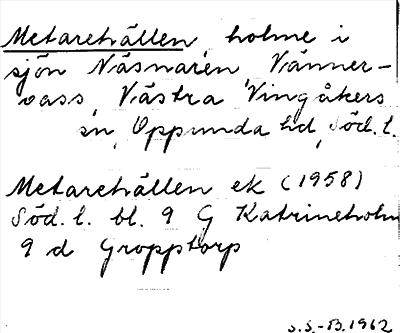 Metarehällen, holme i
sjön Näsnaren, Vänner-
vass, Västra Vingåkers
sn, Oppunda hd, Söd. l.
Metarehällen ek (1958)
Söd. l. bl. 9 G Katrineholm
9 d Gropptorp
S.S.-B. 1962